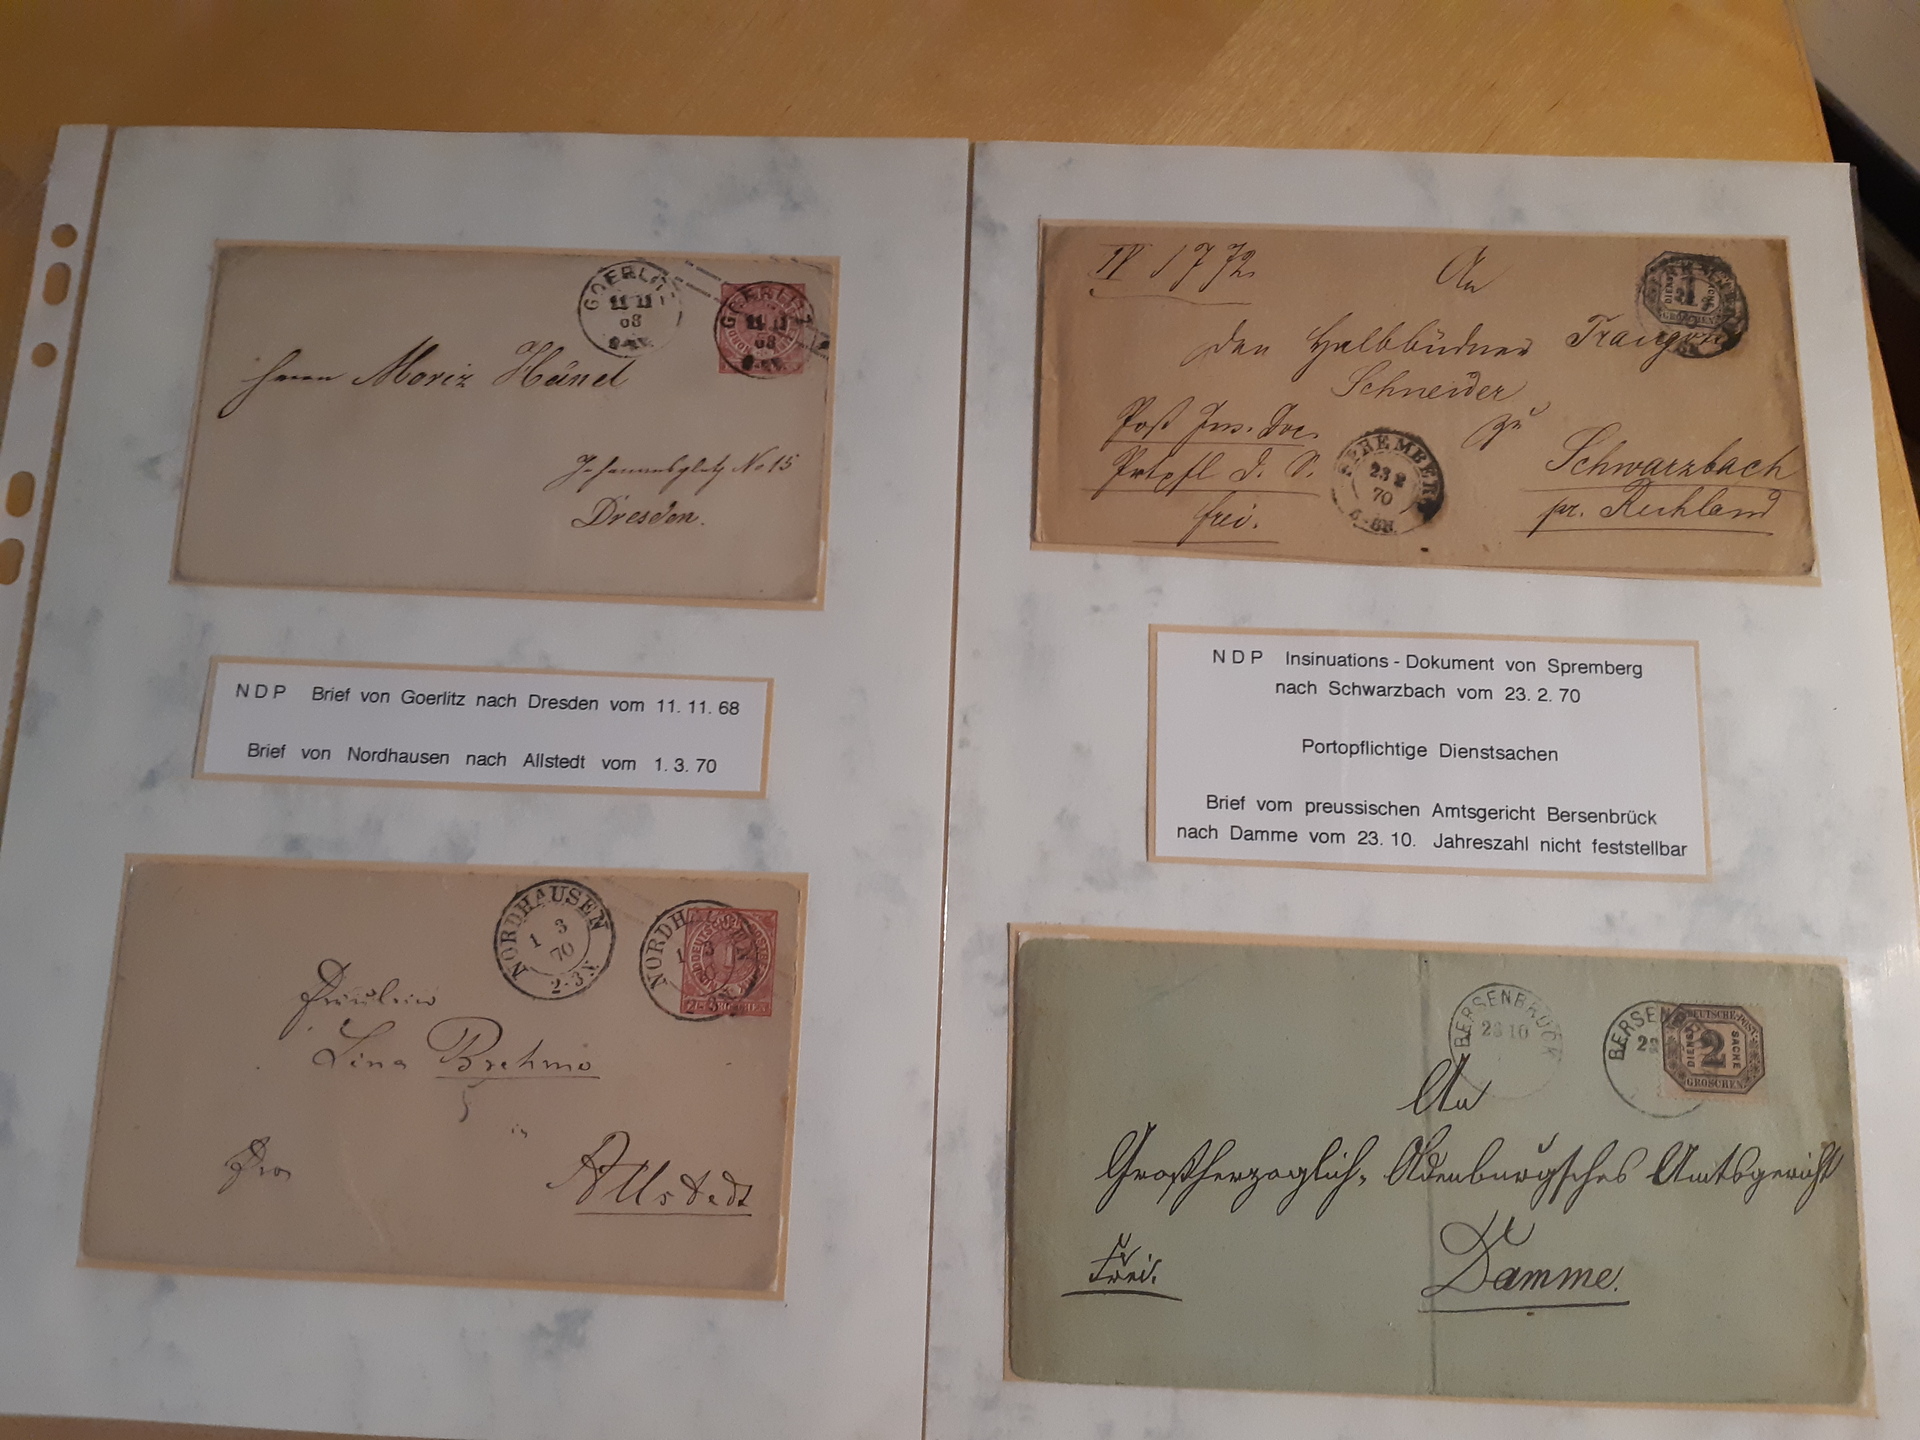 GOERLITZ
11 11
68
GOERLITZ
11 11
68
Herrn Moriz Hänel
Johannesplatz No 15
Dresden.
NDP Brief von Goerlitz nach Dresden vom 11. 11. 68
Brief von Nordhausen nach Allstedt vom 1. 3. 70
NORDHAUSEN
1 3
70
2-3 N.
NORDHAUSEN
1 3
Fräulein
Lina Brehme
in
Allstedt
IV 1772
An
den Halbbüdner Traugott
Schneider
zu
Schwarzbach
pr. Ruhland
Post Ins. Doc.
Prtpfl. D. S.
frei.
SPREMBERG
23 2
70
DIENST SACHE
1
GROSCHEN
NDP Insinuations - Dokument von Spremberg
nach Schwarzbach vom 23. 2. 70
Portopflichtige Dienstsachen
Brief vom preussischen Amtsgericht Bersenbrück
nach Damme vom 23. 10. Jahreszahl nicht feststellbar
BERSENBRÜCK
23 10
BERSENBRÜCK
DEUTSCHE-POST
DIENST SACHE
2
GROSCHEN
An
Großherzoglich-Oldenburgsches Amtsgericht
Frei.
Damme.